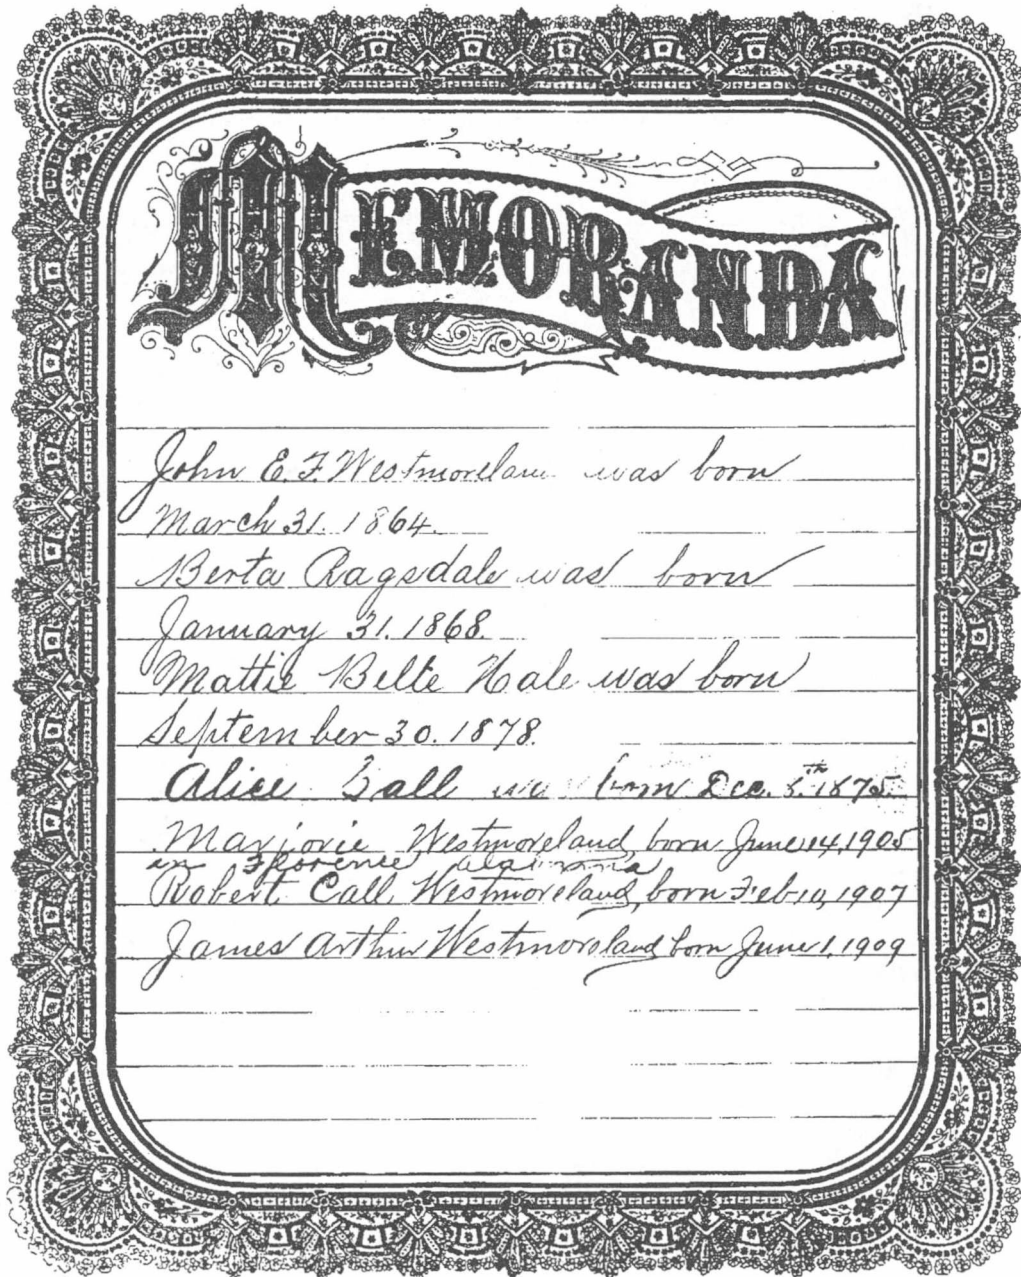 MEMORANDA
John E. F. Westmorelan was born
March 31. 1864.
Berta Ragsdale was born
January 31. 1868.
Mattie Belle Hale was born
September 30. 1878.
Alice Call born Dec. 5th 1875.
Marjorie Westmoreland, born June 14, 1905
in Florence Alabama
Robert Call Westmoreland, born Feb 10, 1907
James Arthur Westmoreland born June 1, 1909